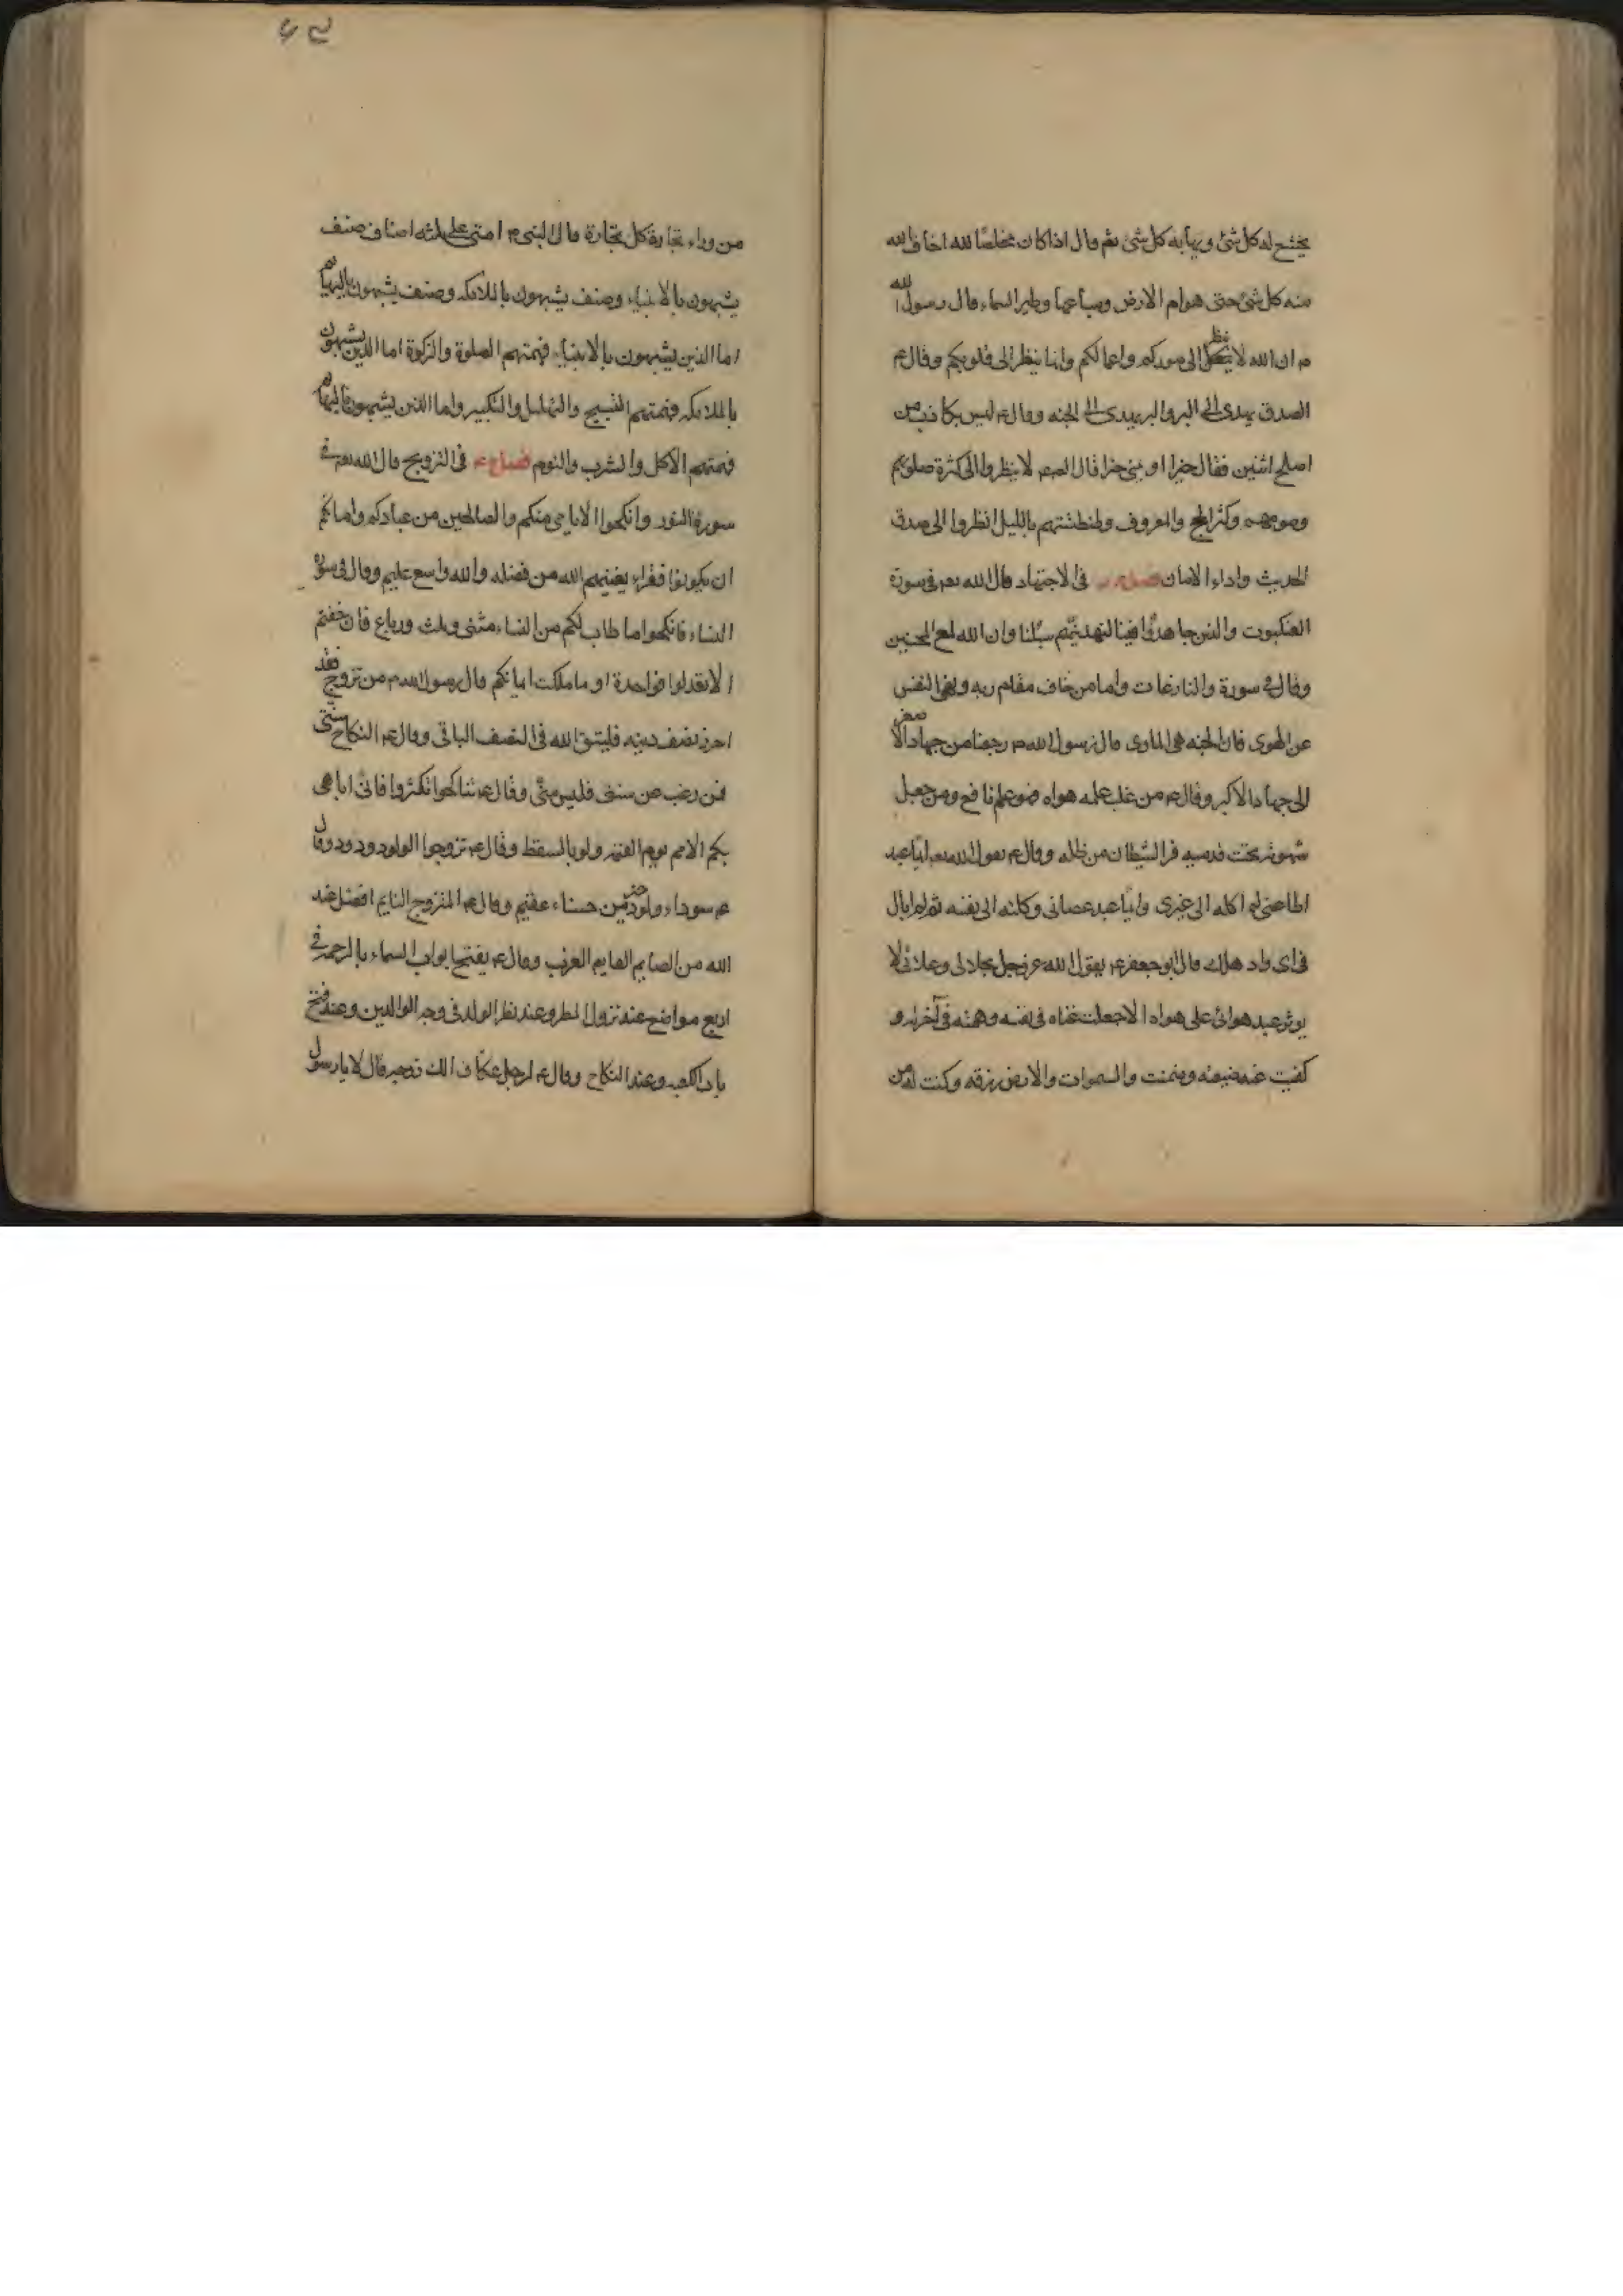 يخشع له كل شئ ويهابه كل شئ ثم قال اذا كان مخلصا لله اخاف الله
منه كل شئ حتى هوام الارض وسباعها وطير السماء قال رسول الله
ص ان الله لا ينظر الى صوركم واعمالكم وانما ينظر الى قلوبكم وقال ع
الصدق يهدى الى البر والبر يهدى الى الجنه وقال ع ليس بكاذب من
اصلح اثنين فقال خيرا او بنى خيرا قال الصم لا ينظروا الى كثرة صلوتهم
وصومهم وكثر الحج والمعروف وطنطنتهم بالليل انظروا الى صدق
الحديث واداء الامان فصل في الاجتهاد قال الله تعم في سورة
العنكبوت والذين جاهدوا فينا لنهدينهم سبلنا وان الله لمع المحسنين
وقال في سورة والنازعات واما من خاف مقام ربه ونهى النفس
عن الهوى فان الجنه هى الماوى قال رسول الله ص رجعنا من جهاد الاصغر
الى جهاد الاكبر وقال ع من غلب علمه هواه فهو علم نافع ومن جعل
شهوته تحت قدميه فر الشيطان من ظله وقال ع يقول الله تعم ايما عبد
اطاعنى لم اكله الى غيرى وايما عبد عصانى وكلته الى نفسه ثم لم ابال
فى اى واد هلك قال ابو جعفر ع يقول الله عز وجل بجلالى وعلائى لا
يوثر عبد هوائى على هواه الا جعلت غناه فى نفسه وهمه فى آخرته و
كفيت عنه ضيعته وضمنت والسموات والارض رزقه وكنت له من
من وراء تجارة كل تجارة قال النبى ص امتى على ثلثه اصناف صنف
يشبهون بالانبياء وصنف يشبهون بالملائكه وصنف يشبهون بالبهايم
اما الذين يشبهون بالانبياء فهمتهم الصلوة والزكوة اما الذين يشبهون
بالملائكه فهمتهم التسبيح والتهليل والتكبير واما الذين يشبهون بالبهايم
فهمتهم الاكل والشرب والنوم فصل فى التزويج قال الله تعم فى
سورة النور وانكحوا الايامى منكم والصالحين من عبادكم وامائكم
ان يكونوا فقراء يغنيهم الله من فضله والله واسع عليم وقال فى سورة
النساء فانكحوا ما طاب لكم من النساء مثنى وثلث ورباع فان خفتم
الا تعدلوا فواحدة او ما ملكت ايمانكم قال رسول الله ص من تزوج فقد
احرز نصف دينه فليتق الله فى النصف الباقى وقال ع النكاح سنتى
فمن رغب عن سنتى فليس منى وقال ع تناكحوا تكثروا فانى اباهى
بكم الامم يوم القيمه ولو بالسقط وقال ع تزوجوا الولود ودود وقال
ع سوداء ولود خير من حسناء عقيم وقال ع المتزوج النايم افضل عند
الله من الصايم القايم العزب وقال ع يفتح ابواب السماء بالرحمه فى
اربع مواضع عند نزول المطر وعند نظر الولد فى وجه الوالدين وعند فتح
باب الكعبه وعند النكاح وقال ع لرجل عكاف الك زوجه قال لا يا رسول